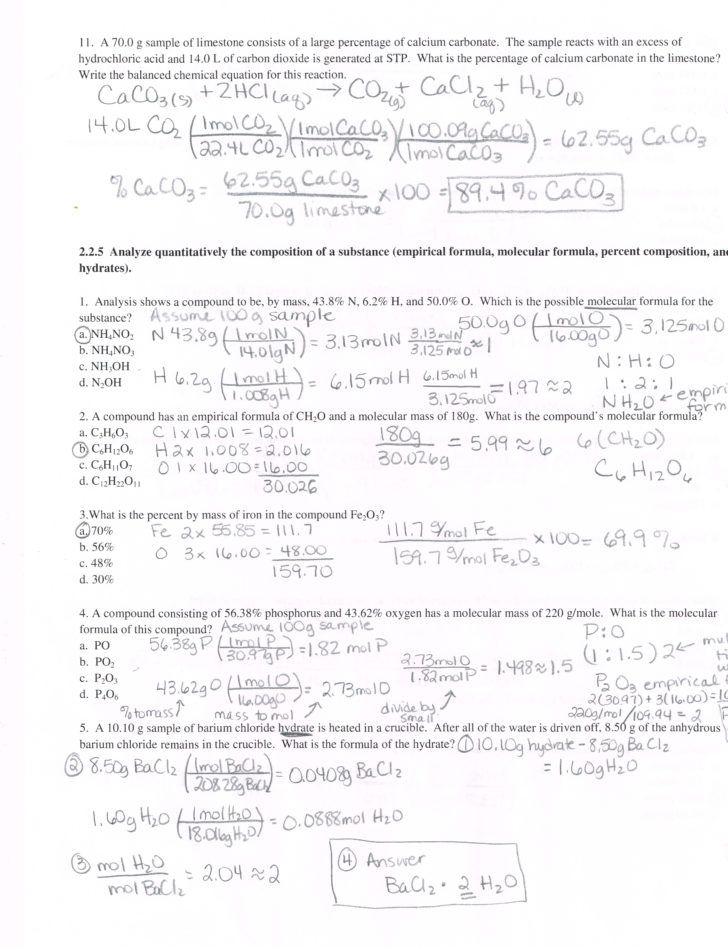 11. A 70.0 g sample of limestone consists of a large percentage of calcium carbonate. The sample reacts with an excess of
hydrochloric acid and 14.0 L of carbon dioxide is generated at STP. What is the percentage of calcium carbonate in the limestone?
Write the balanced chemical equation for this reaction.
CaCO3(s) + 2HCl(aq) → CO2(g) + CaCl2(aq) + H2O(l)
14.0L CO2 (1mol CO2/22.4L CO2)(1mol CaCO3/1mol CO2)(100.09g CaCO3/1mol CaCO3) = 62.55g CaCO3
% CaCO3 = 62.55g CaCO3/70.0g limestone x100 = 89.4% CaCO3
2.2.5 Analyze quantitatively the composition of a substance (empirical formula, molecular formula, percent composition, and
hydrates).
1. Analysis shows a compound to be, by mass, 43.8% N, 6.2% H, and 50.0% O. Which is the possible molecular formula for the
substance? Assume 100g sample
50.0g O (1mol O/16.00g O) = 3.125mol O
a. NH4NO2 N 43.8g (1mol N/14.01g N) = 3.13mol N 3.13 mol N/3.125 mol O ≈ 1
b. NH4NO3
c. NH3OH N:H:O
d. N2OH H 6.2g (1mol H/1.008g H) = 6.15mol H 6.15mol H/3.125mol O = 1.97 ≈ 2 1:2:1
NH2O ← empiri
form
2. A compound has an empirical formula of CH2O and a molecular mass of 180g. What is the compound's molecular formula?
a. C3H6O3 C 1x12.01 = 12.01
b. C6H12O6 H 2x 1.008 = 2.016 180g/30.026g = 5.99 ≈ 6 6(CH2O)
c. C6H11O7 O 1x16.00 = 16.00 C6H12O6
d. C12H22O11 30.026
3.What is the percent by mass of iron in the compound Fe2O3?
a. 70% Fe 2x 55.85 = 111.7 111.7 g/mol Fe/159.7 g/mol Fe2O3 x100 = 69.9%
b. 56% O 3x 16.00 = 48.00
c. 48% 159.70
d. 30%
4. A compound consisting of 56.38% phosphorus and 43.62% oxygen has a molecular mass of 220 g/mole. What is the molecular
formula of this compound? Assume 100g sample P:O
a. PO 56.38g P (1mol P/30.97g P) = 1.82 mol P (1:1.5)2 ← mul
b. PO2 2.73mol O/1.82mol P = 1.498 ≈ 1.5
c. P2O3 P2O3 empirical
d. P4O6 43.62g O (1mol O/16.00g O) = 2.73mol O 2(30.97)+3(16.00)=
% to mass mass to mol divide by small 220g/mol/109.94 = 2
5. A 10.10 g sample of barium chloride hydrate is heated in a crucible. After all of the water is driven off, 8.50 g of the anhydrous
barium chloride remains in the crucible. What is the formula of the hydrate? ① 10.10g hydrate - 8.50g BaCl2
= 1.60g H2O
② 8.50g BaCl2 (1mol BaCl2/208.28g BaCl2) = 0.0408g BaCl2
1.60g H2O (1mol H2O/18.016g H2O) = 0.0888mol H2O
③ mol H2O/mol BaCl2 = 2.04 ≈ 2
④ Answer
BaCl2 · 2 H2O